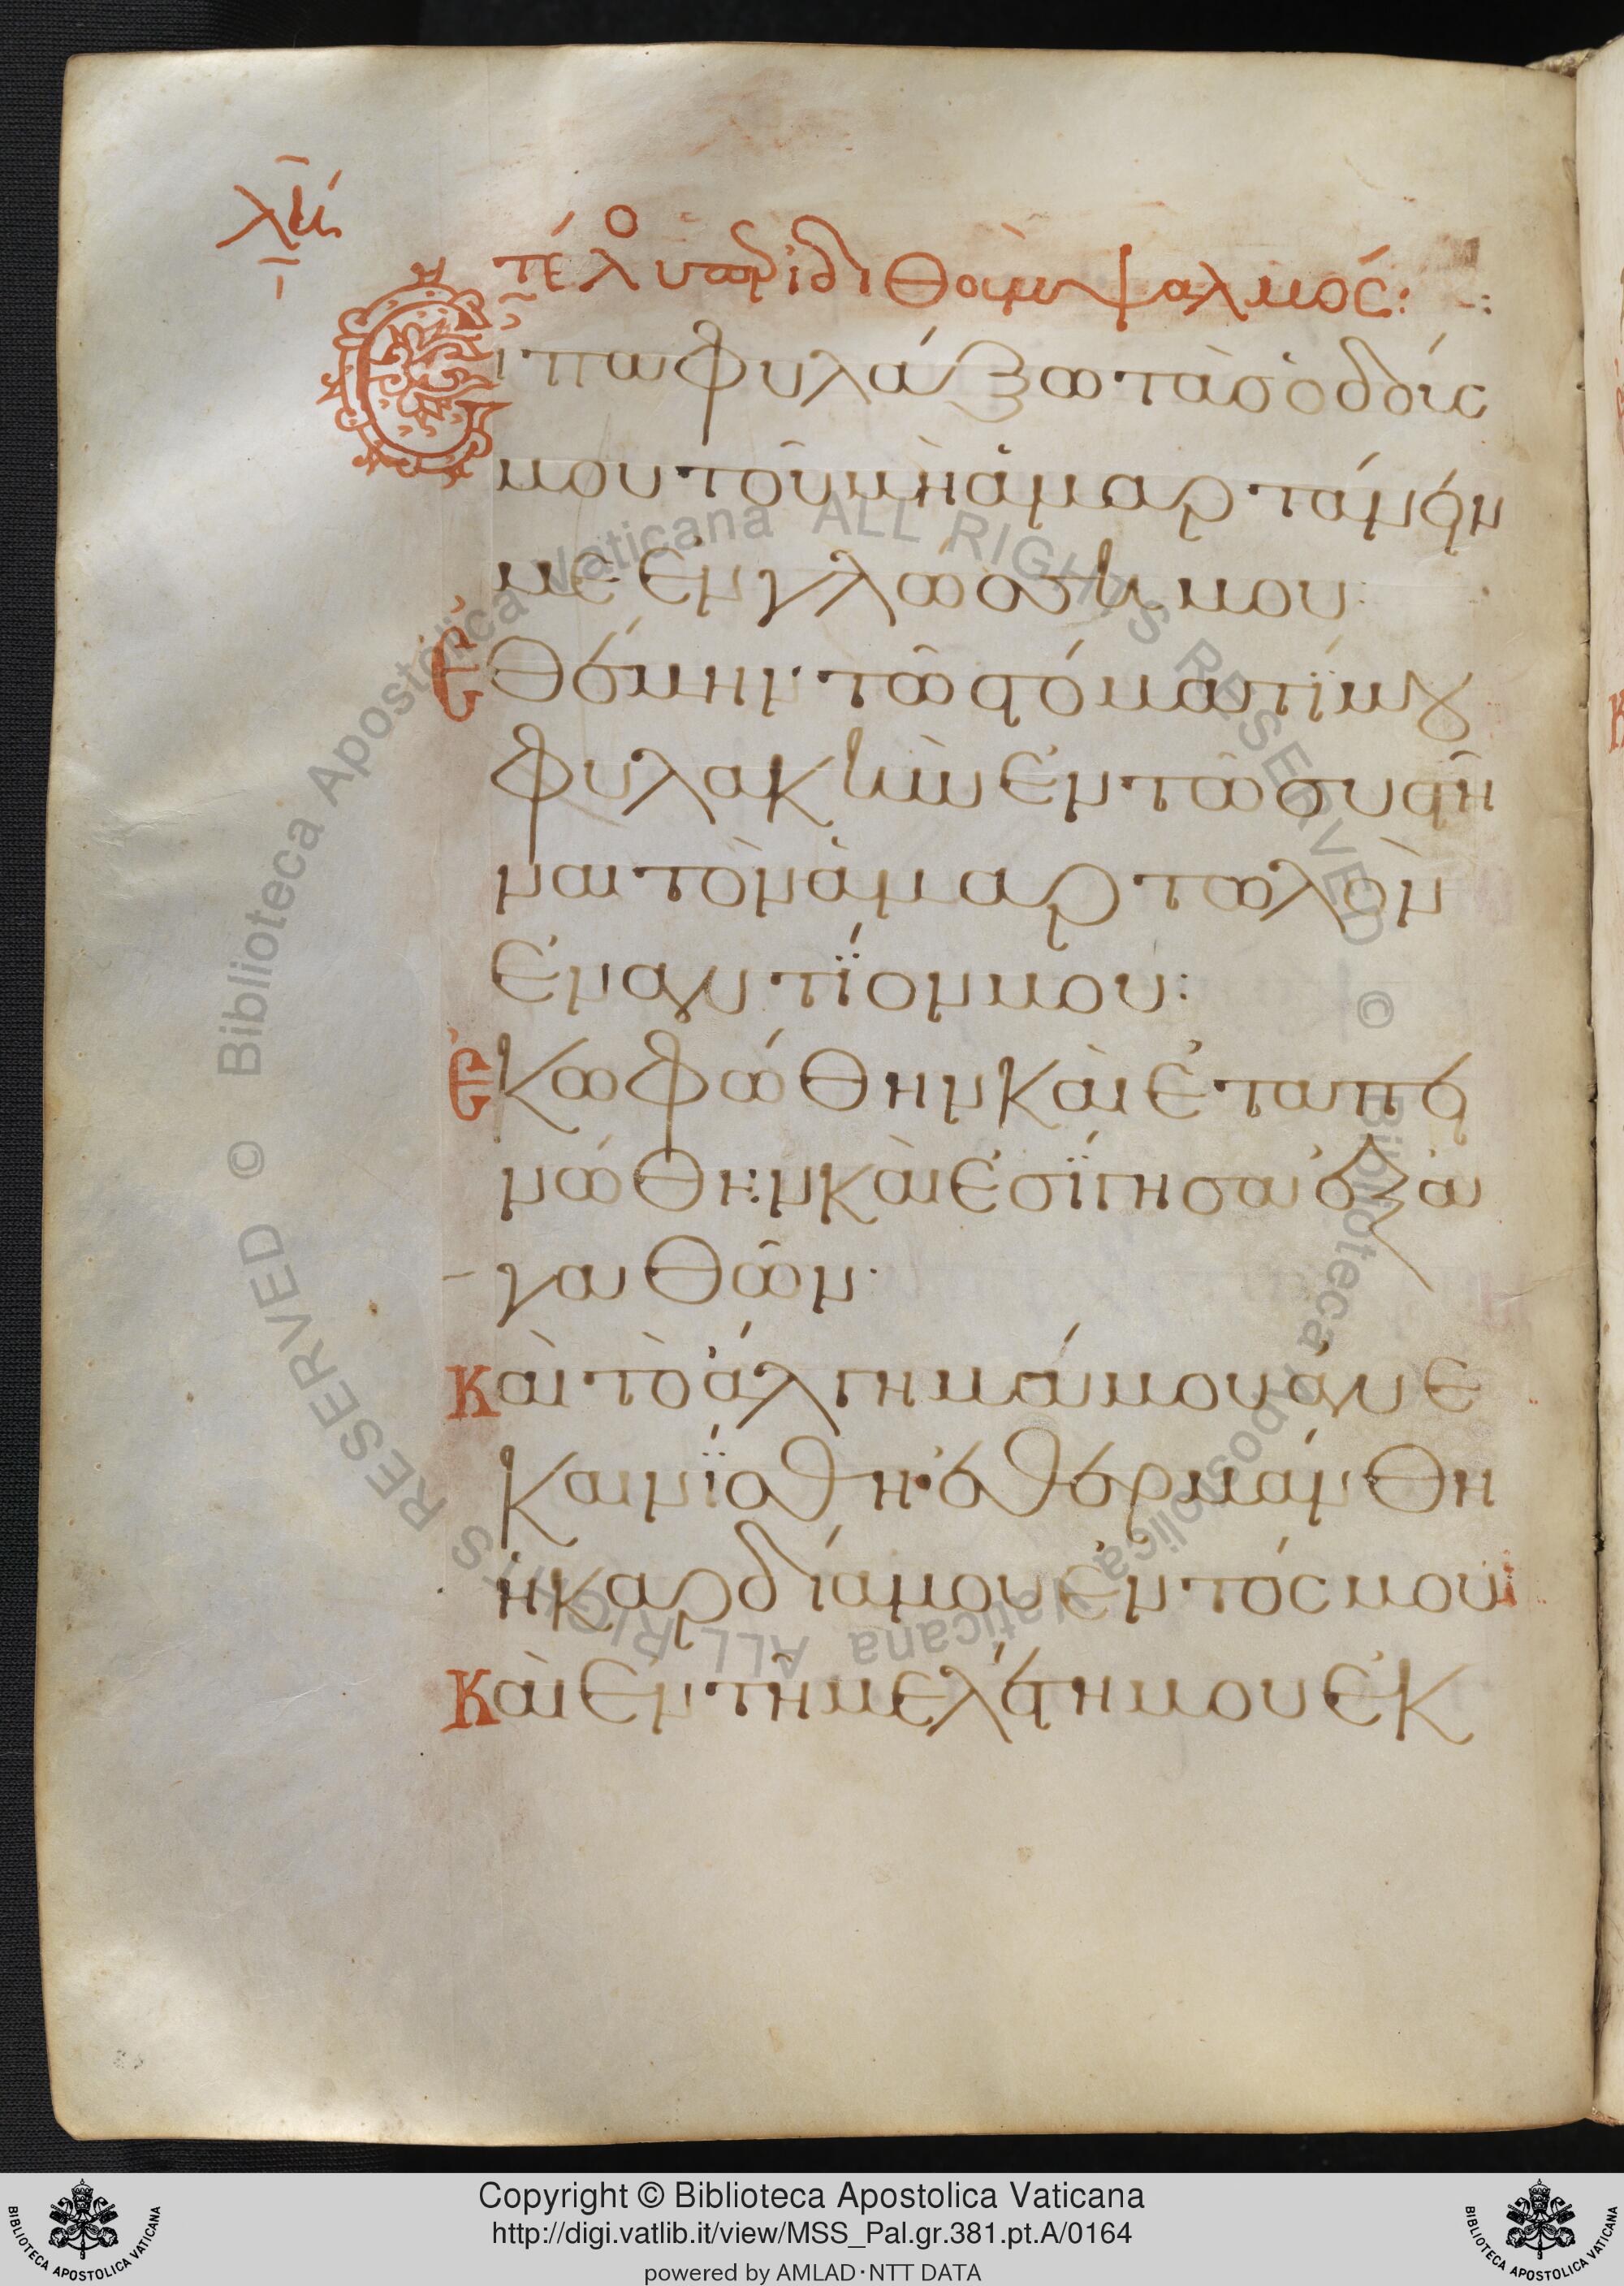 λη
τέλο ὑπὲρ ἰδιθοὺμ ψαλμός:
Εἶπα φυλάξω τὰσ ὁδούς
μου τοῦ μὴ ἁμαρτάνειν
με ἐν γλώσση μου:
Ἐθέμην τῶ στόματί μου
φυλακὴν ἐν τῶ συστῆ
ναι τὸν ἁμαρτωλὸν
ἐναντίον μου:
Ἐκωφώθην καὶ ἐταπει
νώθην καὶ ἐσίγησα ἐξ ἀ
γαθῶν·
Καὶ τὸ ἄλγημά μου ἀνε
καινίσθη· ἐθερμάνθη
ἡ καρδία μου ἐντός μου:
Καὶ ἐν τῆ μελέτη μου ἐκ
Copyright © Biblioteca Apostolica Vaticana
http://digi.vatlib.it/view/MSS_Pal.gr.381.pt.A/0164
powered by AMLAD·NTT DATA
BIBLIOTECA APOSTOLICA VATICANA
BIBLIOTECA APOSTOLICA VATICANA
© Biblioteca Apostolica Vaticana ALL RIGHTS RESERVED © Biblioteca Apostolica Vaticana ALL RIGHTS RESERVED